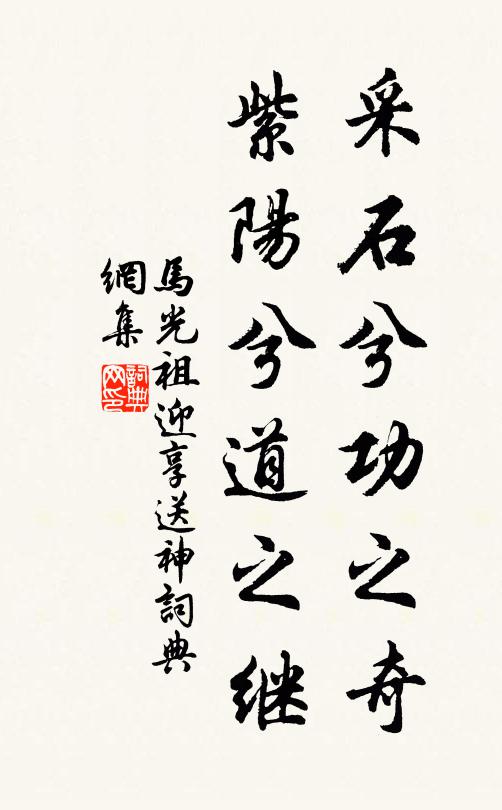 采石兮功之奇
紫陽兮道之继
馬光祖迎享送神詞典
網集
詞典
网印